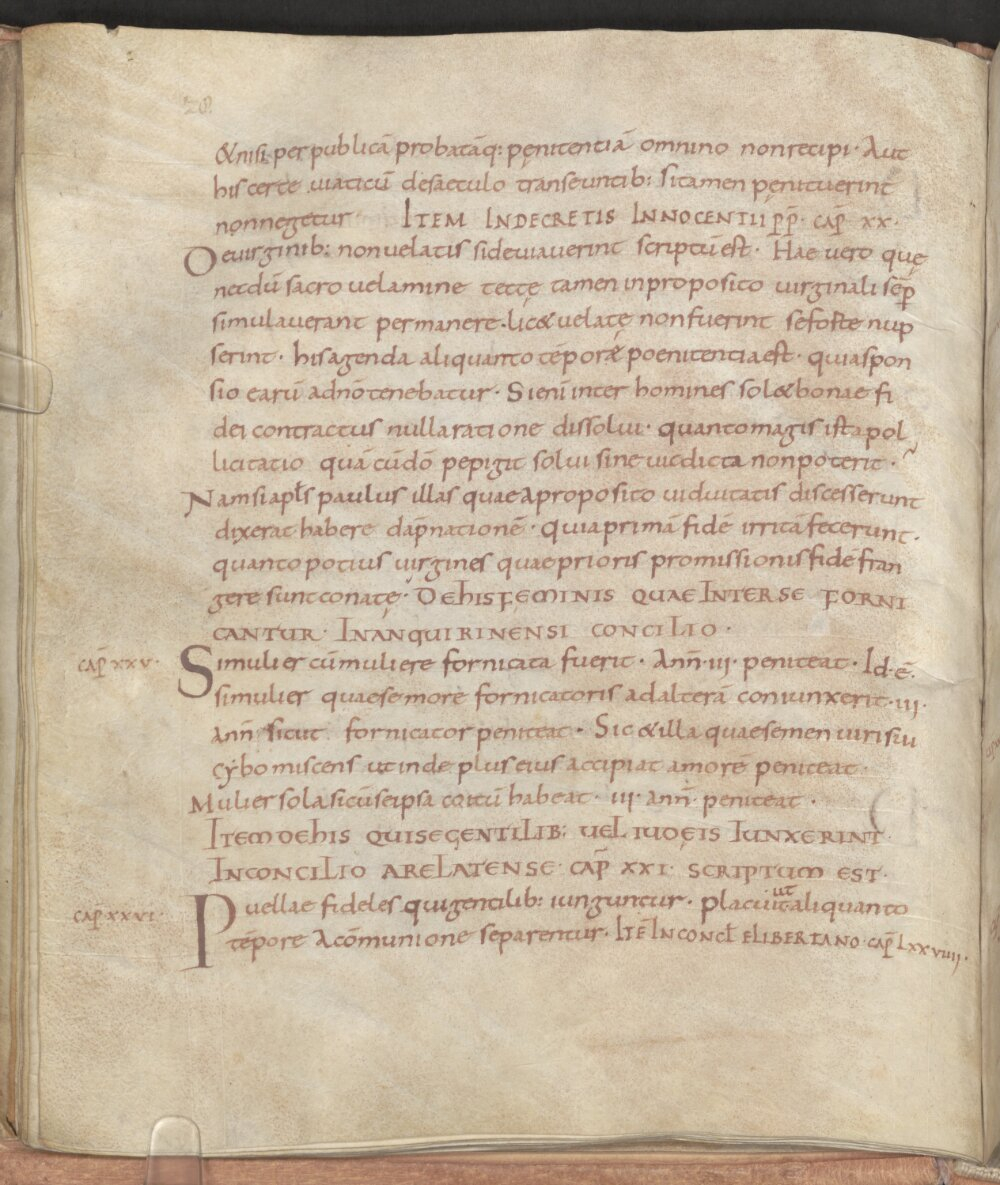 28.
&nisi per publicā probatāq: pęnitentiā omnino nonrecipi · Aut
his certe uiaticū desaeculo transeuntib: sitamen pęnituerint
nonnegetur ITEM INDECRETIS INNOCENTII PP̄. CAP̄ XX ·
Deuirginib: nonuelatis sideuiauerint scriptū est · Hae uero quę
necdū sacro uelamine tectę tamen inproposito uirginali sēp
simulauerant permanere · lic& uelatę nonfuerint seforte nup
serint · his agenda aliquanto tēporæ poenitentia est · quiaspon
sio earū adnō tenebatur · Sienī inter homines sol& bonae fi
dei contractus nulla ratione dissolui · quantomagis ista pol
licitatio quā cūdō pepigit solui sine uicdicta nonpoterit ·
Namsi apl̄s paulus illas quae aproposito uiduitatis discesserunt
dixerat habere dap̄nationē · quia primā fidē irritā fecerunt ·
quanto potius uirgines quae prioris promissionis fidē fran
gere sunt conatę · DEHIS FEMINIS QUAE INTERSE FORNI
CANTUR · INANQUIRINENSI CONCILIO ·
CAP̄ XXV · Simulier cūmuliere fornicata fuerit · Ann̄ · III · peniteat · Id · ē ·
simulier quaesemore fornicatoris adalterā coniunxerit · III ·
ann̄ sicut fornicator peniteat · Sic & illa quaesemen uirisui
cybo miscens ut inde plus eius accipiat amorē peniteat ·
Mulier sola sicūseipsa coitū habeat · III · ann̄ · peniteat ·
ITEM DEHIS QUISEGENTILIB: UEL IUDEIS IUNXERINT ·
INCONCILIO ARELATENSE CAP̄ XXI · SCRIPTUM EST ·
CAP̄ XXVI · Puellae fideles qui gentilib: iunguntur · placuit ut aliquanto
tēpore acōmunione separentur · ITĒ INCONCL̄ ELIBERTANO CAP̄ LXXVIIII ·